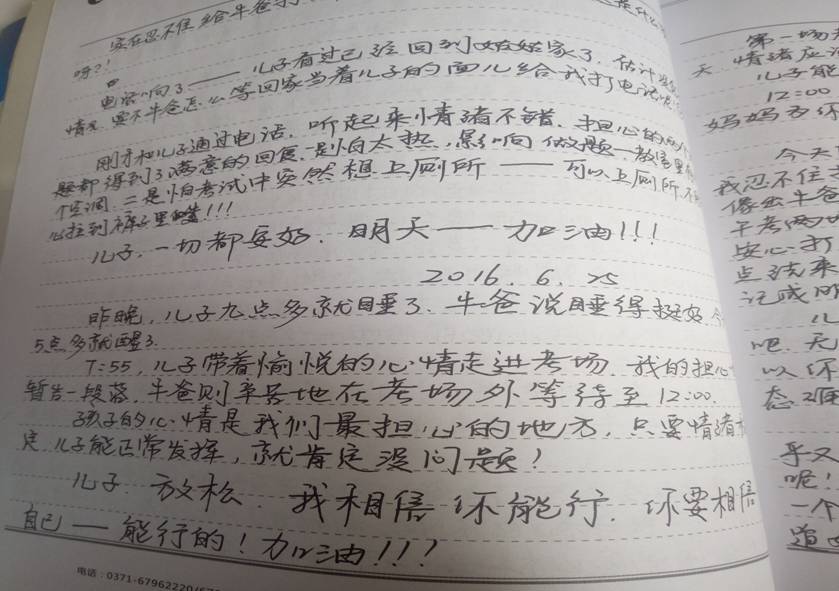 实在忍不住给牛爸打
呀?!
电话响了——儿子看过已经回到姑姑家了.估计
情况.要不牛爸怎么等回家当着儿子的面儿给我打电话呢
刚才和儿子通过电话,听起来情绪不错.担心的两个
题都得到了满意的回复.一是怕太热,影响做题—教室里有
个空调.二是怕考试中突然想上厕所——可以上厕所.不
必拉到裤子里!!!
儿子,一切都安好.明天——加油!!!
2016.6.25
昨晚,儿子九点多就睡了.牛爸说睡得挺好.今
5点多就醒了.
7:55,儿子带着愉悦的心情走进考场.我的担心
暂告一段落.牛爸则辛苦地在考场外等待至12:00.
孩子的心情是我们最担心的地方,只要情绪
定,儿子能正常发挥,就肯定没问题!
儿子.放松.我相信你能行.你要相信
自己——能行的!加油!!!
电话:0371-67962220/
第一场
天 情绪应
儿子能
12:00
妈妈为你
今天
我忍不住
像出牛爸
午考两
安心.打
点该来
记成
儿
吧.天
以你
态.
乎又
呢!
一个
道